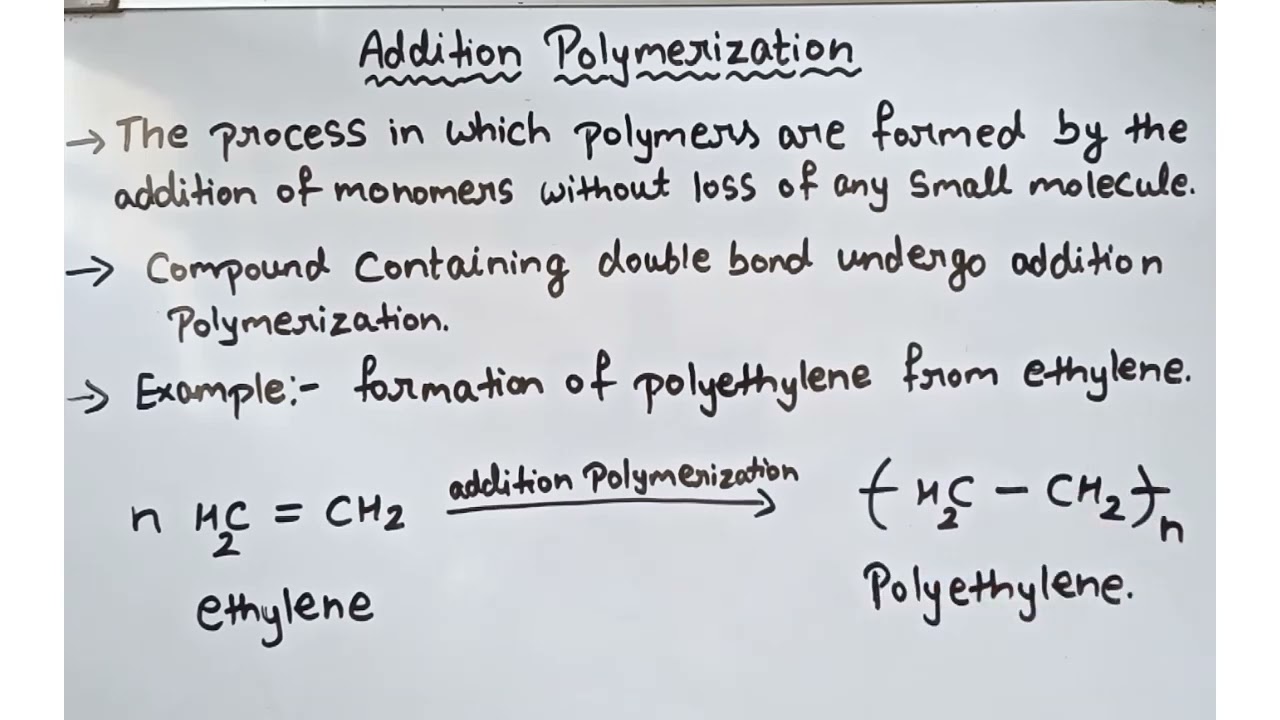 Addition Polymerization
→ The process in which polymers are formed by the
addition of monomers without loss of any small molecule.
→ Compound containing double bond undergo addition
Polymerization.
→ Example:- formation of polyethylene from ethylene.
addition Polymerization
n H₂C = CH₂ ⟶ ( H₂C - CH₂ )ₙ
ethylene Polyethylene.